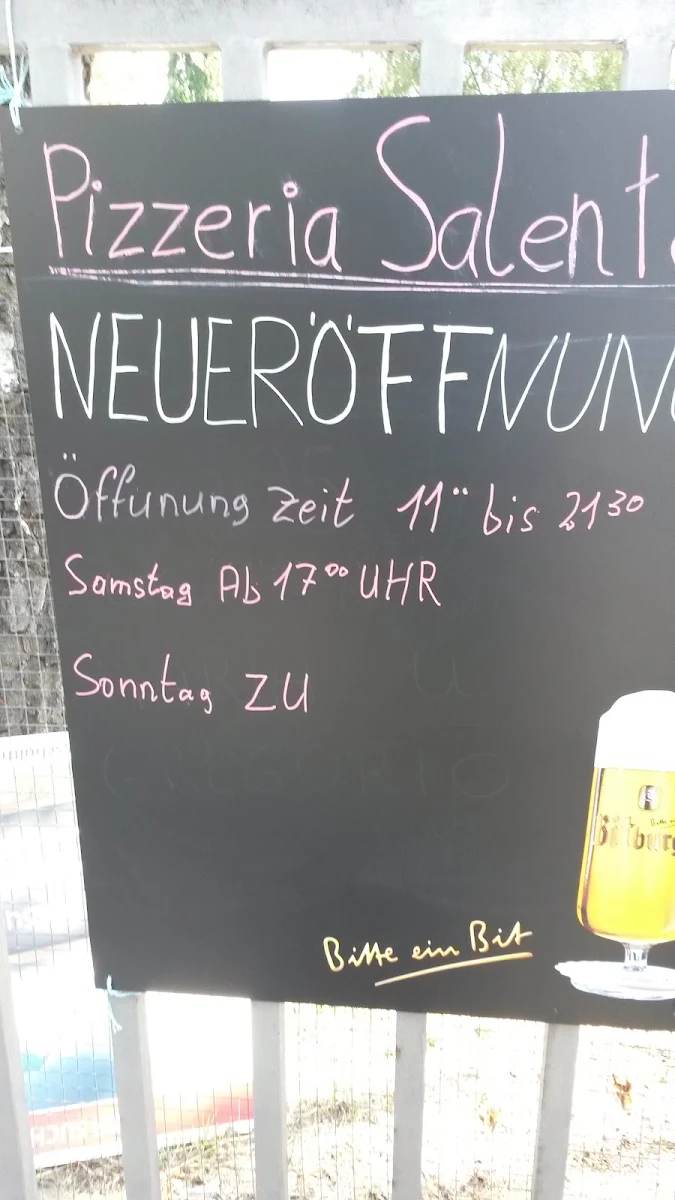 Pizzeria Salent
NEUERÖFFNUN
Öffunung Zeit 11°° bis 21 30
Samstag Ab 17°° UHR
Sonntag ZU
GREGORIO
Bitburg
Bitte ein Bit